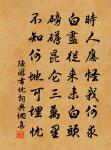 時人應怪我何求
白盡從來未白頭
磅礴昆侖三萬里
不知何地可埋憂